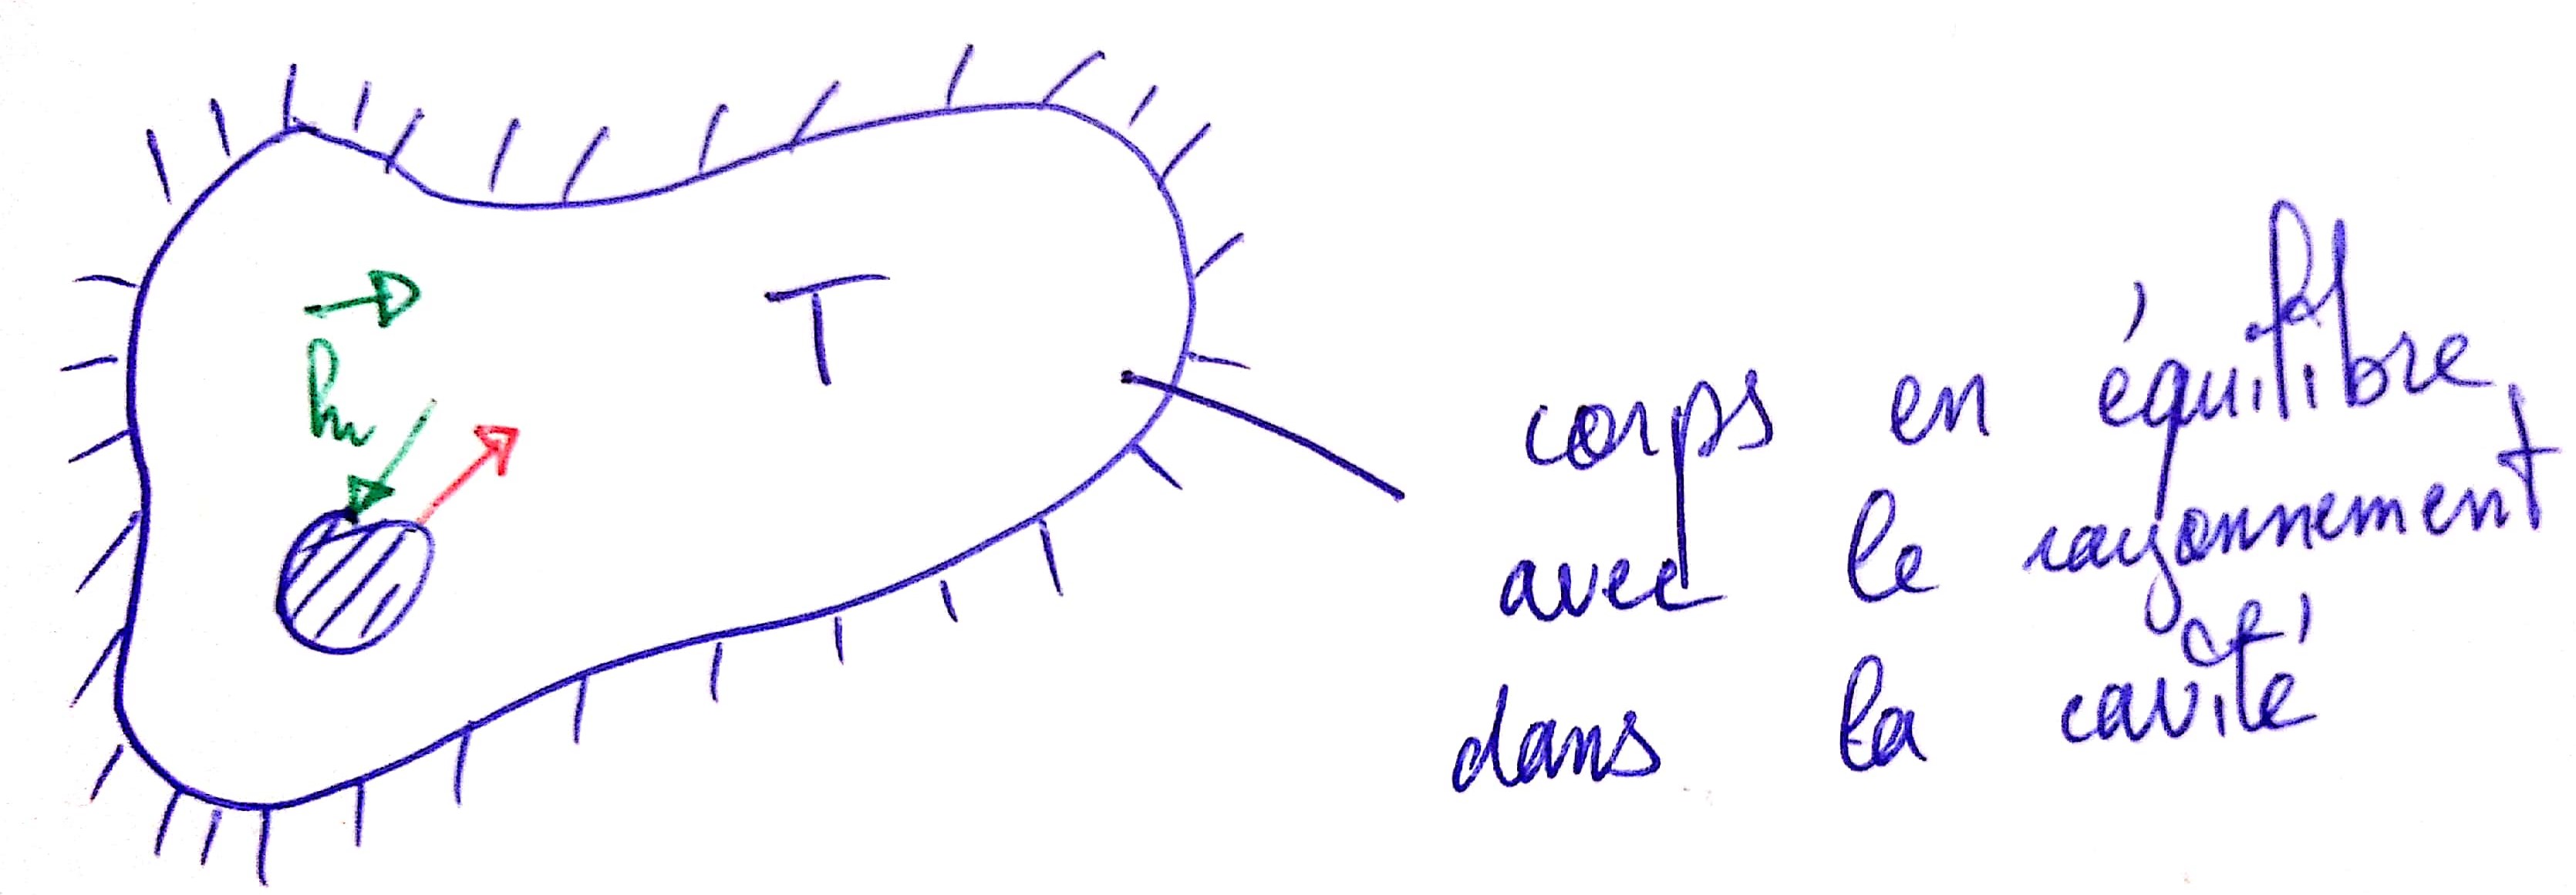 hν
T
corps en équilibre
avec le rayonnement
dans la cavité